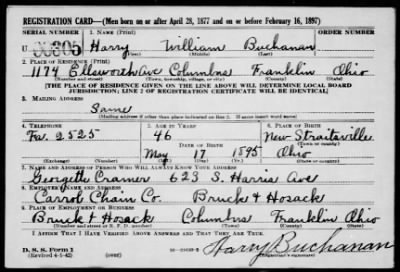 REGISTRATION CARD—(Men born on or after April 28, 1877 and on or before February 16, 1897)
SERIAL NUMBER 1. NAME (Print) ORDER NUMBER
U Harry William Buchanan
(First) (Middle) (Last)
2. PLACE OF RESIDENCE (Print)
1174 Ellsworth Ave Columbus Franklin Ohio
(Number and street) (Town, township, village, or city) (County) (State)
[THE PLACE OF RESIDENCE GIVEN ON THE LINE ABOVE WILL DETERMINE LOCAL BOARD
JURISDICTION; LINE 2 OF REGISTRATION CERTIFICATE WILL BE IDENTICAL]
3. MAILING ADDRESS
Same
[Mailing address if other than place indicated on line 2. If same insert word same]
4. TELEPHONE 5. AGE IN YEARS 6. PLACE OF BIRTH
Fa. 2525 46 New Straitsville
DATE OF BIRTH (Town or county)
May 17 1895 Ohio
(Exchange) (Number) (Mo.) (Day) (Yr.) (State or country)
7. NAME AND ADDRESS OF PERSON WHO WILL ALWAYS KNOW YOUR ADDRESS
Georgette Cramer 623 S. Harris Ave
8. EMPLOYER'S NAME AND ADDRESS
Carrol Chain Co. Bruck & Hosack
9. PLACE OF EMPLOYMENT OR BUSINESS
Bruck & Hosack Columbus Franklin Ohio
(Number and street or R. F. D. number) (Town) (County) (State)
I AFFIRM THAT I HAVE VERIFIED ABOVE ANSWERS AND THAT THEY ARE TRUE.
D. S. S. Form 1
(Revised 4-1-42) (over)
Harry Buchanan